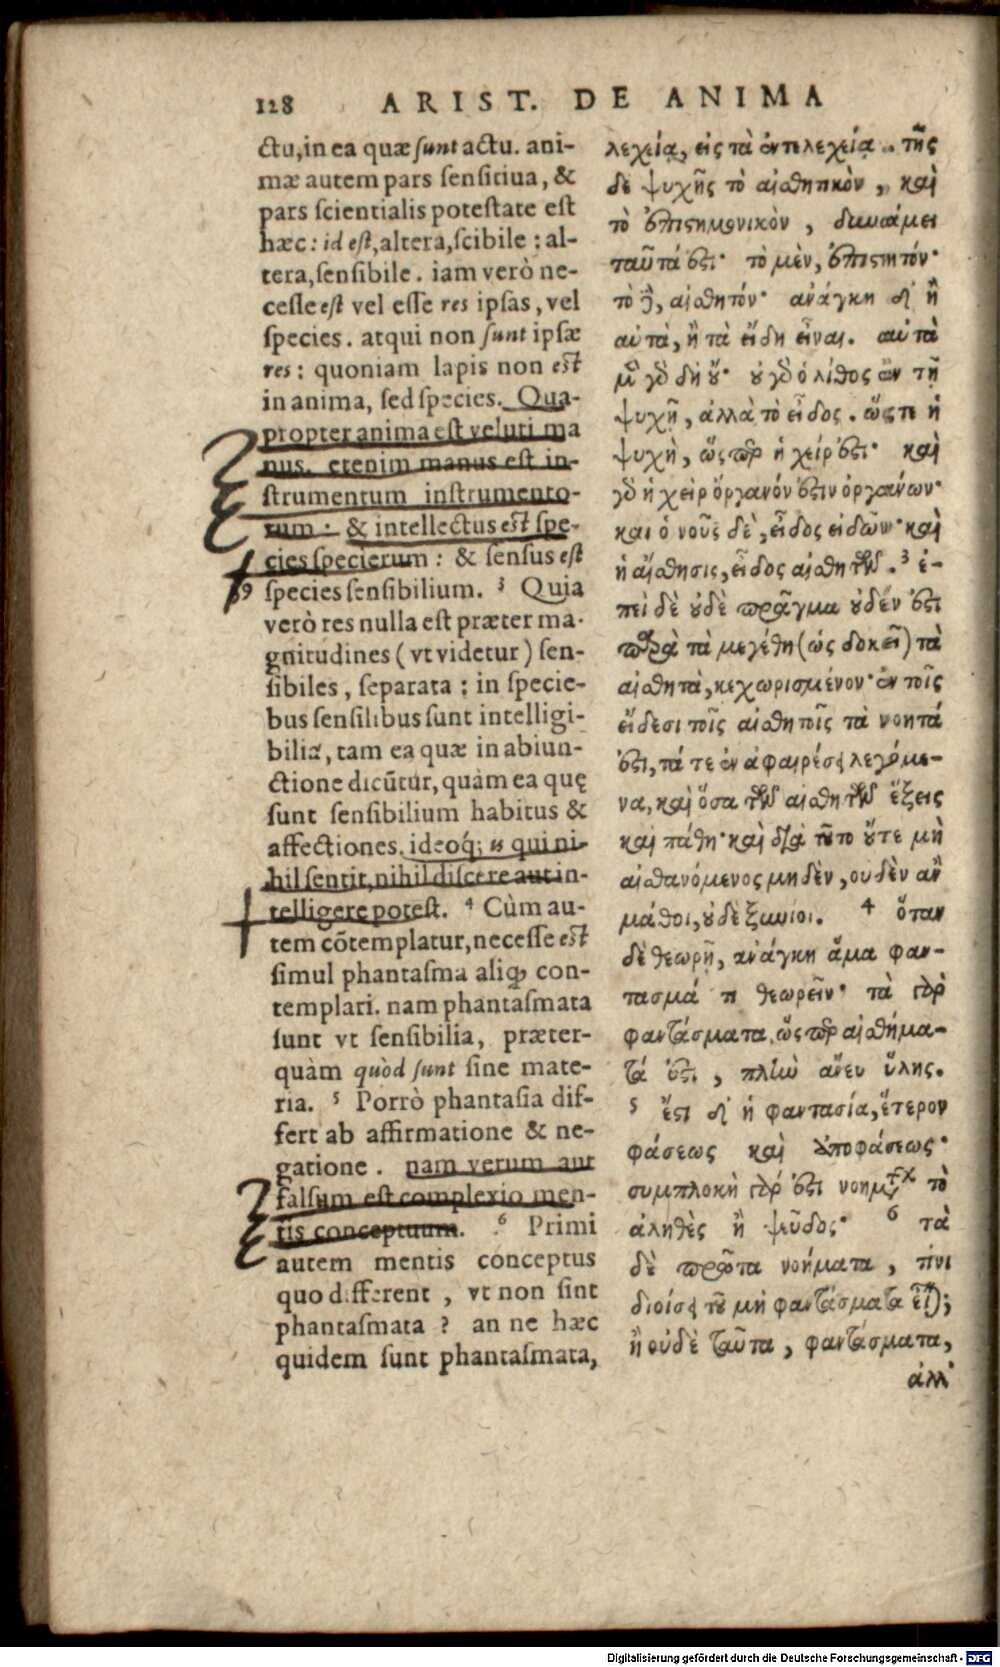 128 ARIST. DE ANIMA
ctu, in ea quæ sunt actu. ani-
mæ autem pars sensitiua, &
pars scientialis potestate est
hæc: id est, altera, scibile: al-
tera, sensibile. iam verò ne-
cesse est vel esse res ipsas, vel
species. atqui non sunt ipsæ
res: quoniam lapis non est
in anima, sed species. Qua-
propter anima est veluti ma
nus. etenim manus est in-
strumentum instrumento-
rum: & intellectus est spe-
cies specierum: & sensus est
species sensibilium. 3 Quia
verò res nulla est præter ma-
gnitudines (vt videtur) sen-
sibiles, separata: in specie-
bus sensilibus sunt intelligi-
bilia, tam ea quæ in abiun-
ctione dicūtur, quàm ea quę
sunt sensibilium habitus &
affectiones. ideoq́; is qui ni-
hil sentit, nihil discere aut in-
telligere potest. 4 Cùm au-
tem cōtemplatur, necesse est
simul phantasma aliqd con-
templari. nam phantasmata
sunt vt sensibilia, præter-
quàm quòd sunt sine mate-
ria. 5 Porrò phantasia dif-
fert ab affirmatione & ne-
gatione. nam verum aut
falsum est complexio men-
tis conceptuum. 6 Primi
autem mentis conceptus
quo different, vt non sint
phantasmata? an ne hæc
quidem sunt phantasmata,
λεχείᾳ, εἰς τὰ ἐντελεχείᾳ. τῆς
δὲ ψυχῆς τὸ αἰσθητικὸν, καὶ
τὸ ἐπιστημονικὸν, δυνάμει
ταῦτά ἐστι· τὸ μὲν, ἐπιστητόν·
τὸ δὲ, αἰσθητόν· ἀνάγκη δ' ἢ
αὐτὰ, ἢ τὰ εἴδη εἶναι. αὐτὰ
μὲν γὰρ δὴ οὔ· οὐ γὰρ ὁ λίθος ἐν τῇ
ψυχῇ, ἀλλὰ τὸ εἶδος. ὥστε ἡ
ψυχὴ, ὥσπερ ἡ χείρ ἐστι· καὶ
γὰρ ἡ χεὶρ ὄργανόν ἐστιν ὀργάνων·
καὶ ὁ νοῦς δὲ, εἶδος εἰδῶν· καὶ
ἡ αἴσθησις, εἶδος αἰσθητῶν. 3 ἐ-
πεὶ δὲ οὐδὲ πρᾶγμα οὐδέν ἐστι
παρὰ τὰ μεγέθη (ὡς δοκεῖ) τὰ
αἰσθητὰ, κεχωρισμένον· ἐν τοῖς
εἴδεσι τοῖς αἰσθητοῖς τὰ νοητά
ἐστι, τά τε ἐν ἀφαιρέσει λεγόμε-
να, καὶ ὅσα τῶν αἰσθητῶν ἕξεις
καὶ πάθη· καὶ διὰ τοῦτο οὔτε μὴ
αἰσθανόμενος μηδὲν, οὐδὲν ἂν
μάθοι, οὐδὲ ξυνίοι. 4 ὅταν
δὲ θεωρῇ, ἀνάγκη ἅμα φάν-
τασμά τι θεωρεῖν· τὰ γὰρ
φαντάσματα, ὥσπερ αἰσθήμα-
τά ἐστι, πλὴν ἄνευ ὕλης.
5 ἔστι δ' ἡ φαντασία, ἕτερον
φάσεως καὶ ἀποφάσεως·
συμπλοκὴ γάρ ἐστι νοημάτων τὸ
ἀληθὲς ἢ ψεῦδος· 6 τὰ
δὲ πρῶτα νοήματα, τίνι
διοίσει τοῦ μὴ φαντάσματα εἶναι;
ἢ οὐδὲ ταῦτα, φαντάσματα,
ἀλλ'
Digitalisierung gefördert durch die Deutsche Forschungsgemeinschaft - DFG